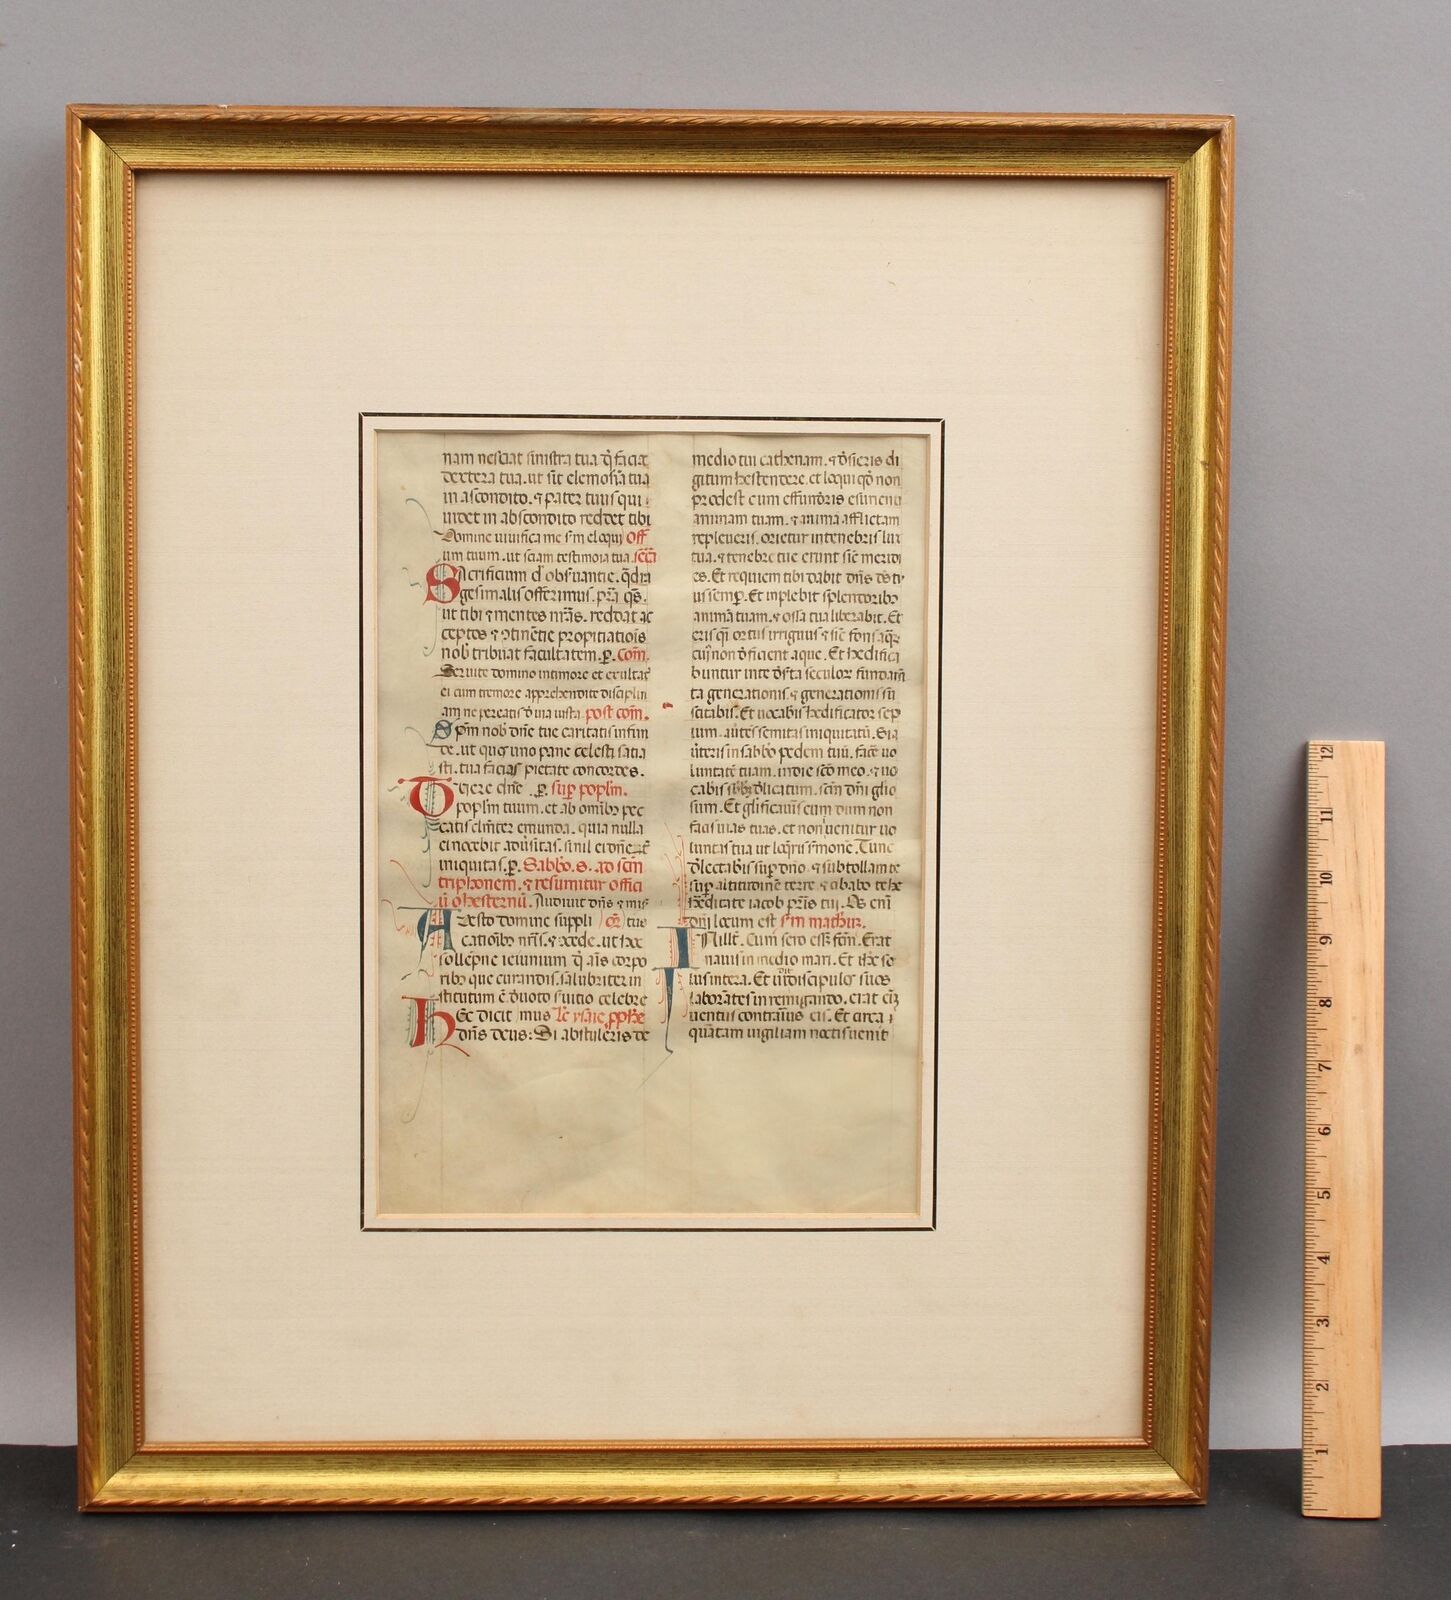 nam nesciat sinistra tua q̄ faciat
dextera tua. ut sit elemosīa tua
in ascondito. & pater tuus qui
uidet in abscondito reddet tibi
Domine uiuifica me sm̄ eloqui off
um tuum. ut sciam testimoīa tua sec̄ta
Sacrificium d̄ obs̄uantie. q̄dra
gesimalis offerimus. p̄ra q̄s.
ut tibi & mentes nr̄as. reddat ac
ceptos & ↄtinētie propitiatiōis
nob̄ tribuat facultatem. p. com̄.
Seruite domino in timore et exultat
ei cum tremore apprehendite disciplin
am ne pereatis d̄ uia iusta. post com̄.
Spm̄ nob̄ dn̄e tue caritatis infun
de. ut quos uno pane celesti satia
sti. tua facias pietate concordes.
Tuere dn̄e p. sup̄ popl̄m.
popl̄m tuum. et ab omib̄ pec
catis clm̄ter emunda. quia nulla
ei nocebit adūsitas. si nł ei dn̄et̄
iniquitas. p. Sabb̄o. s. ad sc̄m
triphonem. & resumitur offici
ū d̄ hesternū. Audiuit dn̄s & mis
Adesto domine suppli or̄ tus
cationib̄ nr̄is. & ↄcede. ut hoc
sollepne ieiunium q̄ aīs corpo
ribq̄ que curandis. salubriter in
stitutum ē d̄uoto s̄uitio celebre
Hec dicit mus Le ysaie pph̄e
dn̄s deus: Si abstuleris de
medio tui cathenam. & d̄sieris di
gitum hestendere. et loqui qd̄ non
prodest cum effund̄ris esurienti
animam tuam. & anima afflictam
repleueris. orietur in tenebris lux
tua. & tenebre tue erunt sic̄ meridi
es. Et requiem tibi dabit dn̄s d̄s t
uus semp̄. Et inplebit splendorib̄
animā tuam. & ossa tua liberabit. Et
eris q̄i ortus irriguus & sic̄ fons aq̄r
cuī non d̄ficient aque. Et hedifica
buntur in te d̄s̄ta seculor fundam̄
ta generationis. & generationis su
scitabis. Et uocabis hedificator sep
ium. aūtes semitas iniquitatū. Si a
ūteris in sabb̄o pedem tuū. face uo
luntatē tuam. in die sc̄o meo. & uo
cabis sabb̄ d̄licatum. scm̄ dn̄i glio
sum. Et glificaūis eum dum non
facis uias tuas. et non uenitur uo
luntas tua ut loq̄ris s̄mone. Tunc
d̄lectabis sup̄ dn̄o & subtollam te
sup̄ altitudinē terre & cibabo te he
reditate iacob pr̄is tui. Os enī
dn̄i locum est sm̄ mathur.
In illt̄. Cum sero ess̄ fc̄m. Erat
nauis in medio mari. Et ih̄c so
lus in terra. Et uid̄ discipulos suos
laborātes in remigando. erat eīz
uentus contrāius eis. Et circa
quātam uigiliam noctis uenit
12
11
10
9
8
7
6
5
4
3
2
1